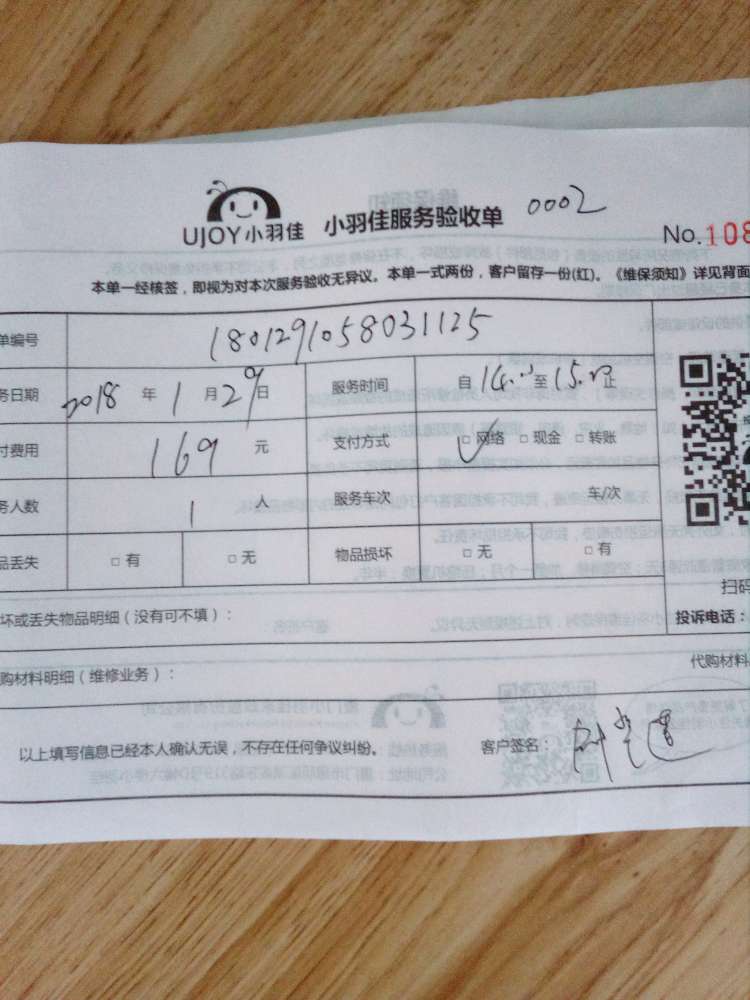 UJOY小羽佳 小羽佳服务验收单 0002
No.108
本单一经核签，即视为对本次服务验收无异议。本单一式两份，客户留存一份(红)。《维保须知》详见背面
单编号 1801291058031125
务日期 2018 年 1 月 29 日 服务时间 自 14:00 至 15:00 止
付费用 169 元 支付方式 ☑ 网络 □ 现金 □ 转账
务人数 1 人 服务车次 车/次
品丢失 □ 有 □ 无 物品损坏 □ 无 □ 有
扫码
坏或丢失物品明细（没有可不填）：
投诉电话：
购材料明细（维修业务）：
代购材料
以上填写信息已经本人确认无误，不存在任何争议纠纷。 客户签名：